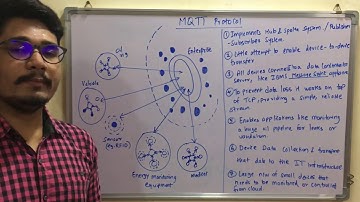 MQTT Protocol
① Implements Hub & Spoke System / Publisher
- Subscriber System
② Little attempt to enable device-to-device
transfer
③ All devices connect to a data concentrator
server, like IBM's Message Sight appliance
④ To prevent data loss it works on top
of TCP, providing a simple, reliable
stream
⑤ Enables applications like monitoring
a huge oil pipeline for leaks or
vandalism
⑥ Device Data Collection & transfer
that data to the IT infrastructure
⑦ Large no of small devices that
needs to be monitored or controlled
from cloud
Enterprise
Vehicle
Sensor
(eg. RFID)
Energy monitoring
equipment